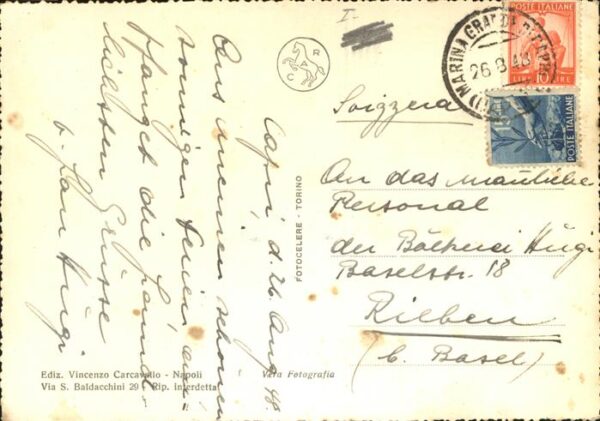 Capri, d. 26. Aug. 48.
Aus meinen schönen
sonnigen Ferien, em-
pfanget die freund-
lichsten Grüsse
v. Frau Hügi
Svizzera
An das männliche
Personal
der Bäckerei Hügi
Baselstr. 18
Riehen
(b. Basel)
POSTE ITALIANE
10 LIRE
POSTE ITALIANE
MARINA GRANDE
26 8 48
C R A
FOTOCELERE - TORINO
Vera Fotografia
Ediz. Vincenzo Carcavallo - Napoli
Via S. Baldacchini 29 - Rip. interdetta